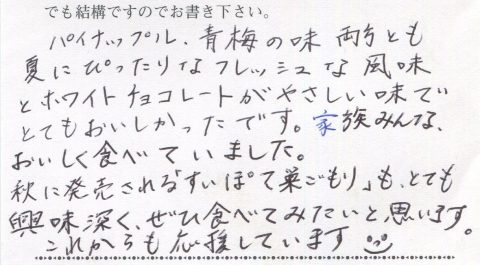 でも結構ですのでお書き下さい。
パイナップル、青梅の味 両方とも
夏にぴったりなフレッシュな風味
とホワイトチョコレートがやさしい味で
とてもおいしかったです。家族みんな、
おいしく食べていました。
秋に発売される「すいぽて巣ごもり」も、とても
興味深く、ぜひ食べてみたいと思います。
これからも応援しています